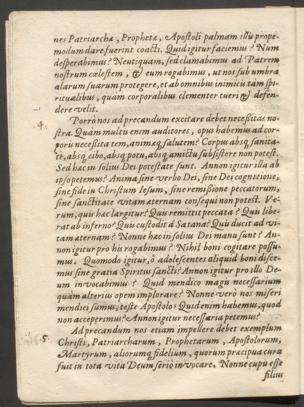 nes Patriarchæ, Prophetæ, Apostoli palmam illũ prope-
modum dare fuerint coacti. Quid igitur faciemus? Num
desperabimus? Neutiquam, sed clamabimus ad Patrem
nostrum cœlestem, & eum rogabimus, ut nos sub umbra
alarum suarum protegere, et ab omnibus inimicis tàm spi-
ritualibus, quàm corporalibus clementer tueri & defen-
dere velit.
4. Porrò nos ad precandum excitare debet necessitas no-
stra. Quàm multis enim auditores, opus habemus ad cor-
poris necessitatem, animæq; salutem? Corpus absq; sanita-
te, absq; cibo, absq; potu, absq; amictu subsistere non potest.
Sed hæc in solius Dei potestate sunt. An non igitur illa ab
ipso petemus? Anima sine verbo Dei, sine Dei cognitione,
sine fide in Christum Iesum, sine remissione peccatorum,
sine sanctitate vitam æternam consequi non potest. Ve-
rum, quis hæc largitur? Quis remittit peccata? Quis libe-
rat ab inferno? Quis custodit à Satana? Quis ducit ad vi-
tam æternam? Nonne hæc in solius Dei manu sunt? An-
non igitur pro his rogabimus? Nihil boni cogitare possu-
mus. Quomodo igitur, ô adolescentes aliquid boni disce-
mus sine gratia Spiritus sancti? An non igitur pro illo De-
um invocabimus? Quid mendico magis necessarium
quàm alterius opem implorare? Nonne verò nos miseri
mendici sumus, teste Apostolo: Quid enim habemus, quod
non acceperimus? An non igitur necessaria petemus?
5. Ad precandum nos etiam impellere debet exemplum
Christi, Patriarcharum, Prophetarum, Apostolorum,
Martyrum, aliorumq; fidelium, quorum præcipua cura
fuit in tota vita Deum seriò invocare. Nonne cupis esse
filius